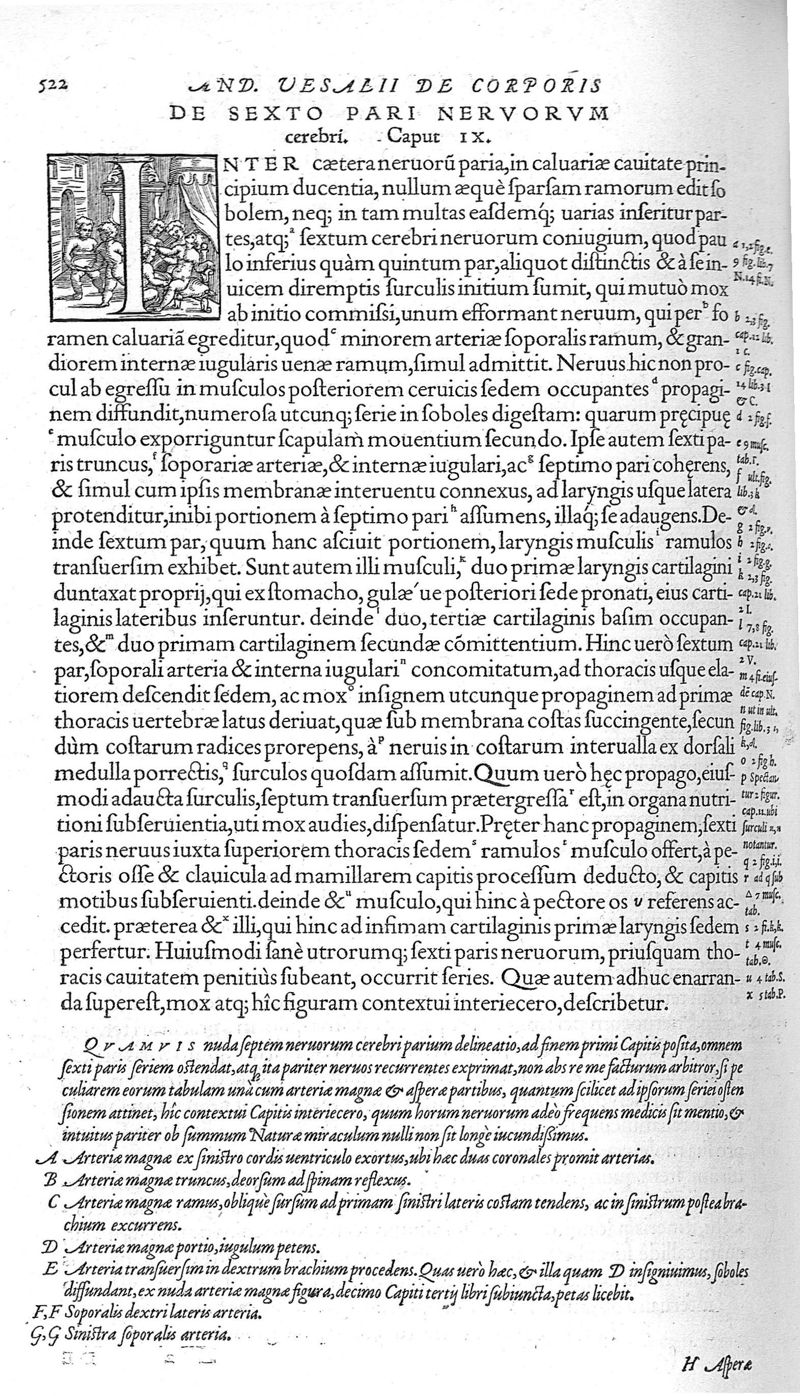 522
AND. VESALII DE CORPORIS
DE SEXTO PARI NERVORVM
cerebri. Caput IX.
INTER cæteraneruorũ paria,in caluariæ cauitate prin-
cipium ducentia, nullum æquè ſparſam ramorum edit ſo
bolem, neq; in tam multas eaſdemq́; uarias inſeritur par-
tes,atq; a ſextum cerebri neruorum coniugium, quod pau
lo inferius quàm quintum par,aliquot diſtinctis & à ſe in-
uicem diremptis ſurculis initium ſumit, qui mutuò mox
ab initio commiſsi,unum efformant neruum, qui per b fo
ramen caluariã egreditur,quod c minorem arteriæ ſoporalis ramum, & gran-
diorem internæ iugularis uenæ ramum,ſimul admittit. Neruus hic non pro-
cul ab egreſſu in muſculos poſteriorem ceruicis ſedem occupantes d propagi-
nem diffundit,numeroſa utcunq; ſerie in ſoboles digeſtam: quarum pręcipuę
e muſculo exporriguntur ſcapulam mouentium ſecundo. Ipſe autem ſexti pa-
ris truncus, f ſoporariæ arteriæ,& internæ iugulari,ac g ſeptimo pari cohęrens,
& ſimul cum ipſis membranæ interuentu connexus, ad laryngis uſque latera
protenditur,inibi portionem à ſeptimo pari h aſſumens, illaq́; ſe adaugens.De-
inde ſextum par, quum hanc aſciuit portionem, laryngis muſculis i ramulos
tranſuerſim exhibet. Sunt autem illi muſculi, k duo primæ laryngis cartilagini
duntaxat proprij,qui ex ſtomacho, gulæ ́ue poſteriori ſede pronati, eius carti-
laginis lateribus inſeruntur. deinde l duo, tertiæ cartilaginis baſim occupan-
tes,& m duo primam cartilaginem ſecundæ cõmittentium. Hinc uerò ſextum
par,ſoporali arteria & interna iugulari n concomitatum,ad thoracis uſque ela-
tiorem deſcendit ſedem, ac mox o inſignem utcunque propaginem ad primæ
thoracis uertebræ latus deriuat,quæ ſub membrana coſtas ſuccingente,ſecun
dùm coſtarum radices prorepens, à p neruis in coſtarum interualla ex dorſali
medulla porrectis, q ſurculos quoſdam aſſumit. Quum uerò hęc propago,eiuſ-
modi adaucta ſurculis,ſeptum tranſuerſum prætergreſſa r eſt,in organa nutri-
tioni ſubſeruientia,uti mox audies,diſpenſatur.Pręter hanc propaginem,ſexti
paris neruus iuxta ſuperiorem thoracis ſedem s ramulos t muſculo offert,à pe-
ctoris oſſe & clauicula ad mamillarem capitis proceſſum deducto, & capitis
motibus ſubſeruienti.deinde & u muſculo,qui hinc à pectore os υ referens ac-
cedit. præterea & x illi,qui hinc ad infimam cartilaginis primæ laryngis ſedem
perfertur. Huiuſmodi ſanè utrorumq; ſexti paris neruorum, priuſquam tho-
racis cauitatem penitiùs ſubeant, occurrit ſeries. Quæ autem adhuc enarran-
da ſupereſt,mox atq; hîc figuram contextui interiecero,deſcribetur.
a 1,2 fig.
9 fig. lib.7
N.14 fi.N.
b 2,3 fig.
cap.12 lib.
1 C.
c fig.cap.
14 lib.3
& C.
d 2 fig.f.
e 9 muſc.
tab.Γ.
f ult.fig.
lib.3 k
& d.
g 2 fig.
h 2 fig.
i 2 fig.g.
k 2,3 fig.
cap.21 lib.
2 L
l 7,8 fig.
cap.21 lib.
2 V.
m 4 fi.eiuſ-
dē cap.N.
n ut in ult.
fig.lib.3
k,d.
o 2 fig h.
p Spectan
tur 2 figur.
cap.11.ubi
ſurculi
notantur.
q 2 fig.i,i.
r ad q ſub
Δ 7 muſc.
tab.
s 2 fi.k,k.
t 4 muſc.
tab.Θ.
u 4 tab.S.
x 5 tab.P.
QVAMVIS nuda ſeptem neruorum cerebri parium delineatio,ad finem primi Capitis poſita,omnem
ſexti paris ſeriem oſtendat,atq; ita pariter neruos recurrentes exprimat,non abs re me facturum arbitror,ſi pe
culiarem eorum tabulam unà cum arteriæ magnæ & aſperæ partibus, quantum ſcilicet ad ipſorum ſeriei oſten
ſionem attinet, hîc contextui Capitis interiecero, quum horum neruorum adeò frequens medicis ſit mentio,&
intuitus pariter ob ſummum Naturæ miraculum nulli non ſit longè iucundiſsimus.
A Arteria magna ex ſiniſtro cordis uentriculo exortus,ubi hæc duas coronales promit arterias.
B Arteriæ magnæ truncus,deorſum ad ſpinam reflexus.
C Arteriæ magnæ ramus,obliquè ſurſum ad primam ſiniſtri lateris coſtam tendens, ac in ſiniſtrum poſtea bra-
chium excurrens.
D Arteriæ magnæ portio,iugulum petens.
E Arteria tranſuerſim in dextrum brachium procedens.Quas uerò hæc,& illa quam D inſigniuimus,ſoboles
diffundant,ex nuda arteriæ magnæ figura,decimo Capiti tertij libri ſubiuncta,petas licebit.
F,F Soporalis dextri lateris arteria.
G,G Siniſtra ſoporalis arteria.
H Aſperæ